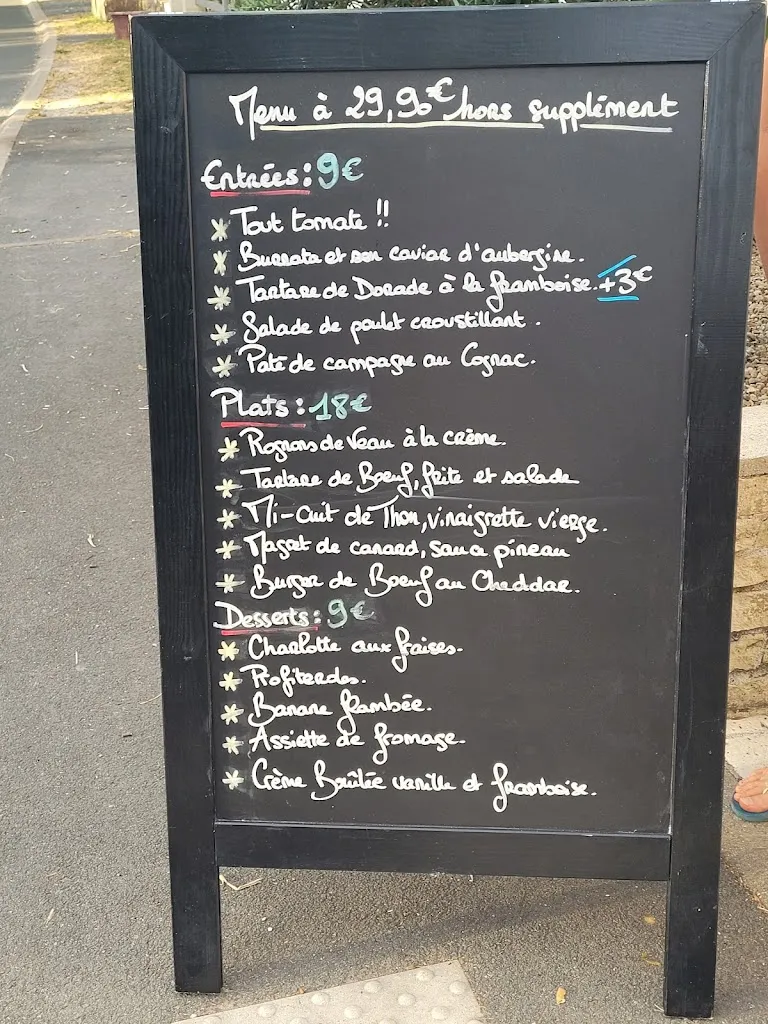 Menu à 29,90€ hors supplément
Entrées : 9€
* Tout tomate !!
* Burrata et son caviar d'aubergine.
* Tartare de Dorade à la framboise. +3€
* Salade de poulet croustillant.
* Pate de campagne au Cognac.
Plats : 18€
* Rognons de Veau à la crème.
* Tartare de Boeuf, frite et salade
* Mi-Cuit de Thon, vinaigrette vierge.
* Magret de canard, sauce pineau
* Burger de Boeuf au Cheddar.
Desserts : 9€
* Charlotte aux fraises.
* Profiteroles.
* Banane flambée.
* Assiette de fromage.
* Crème Brûlée vanille et framboise.